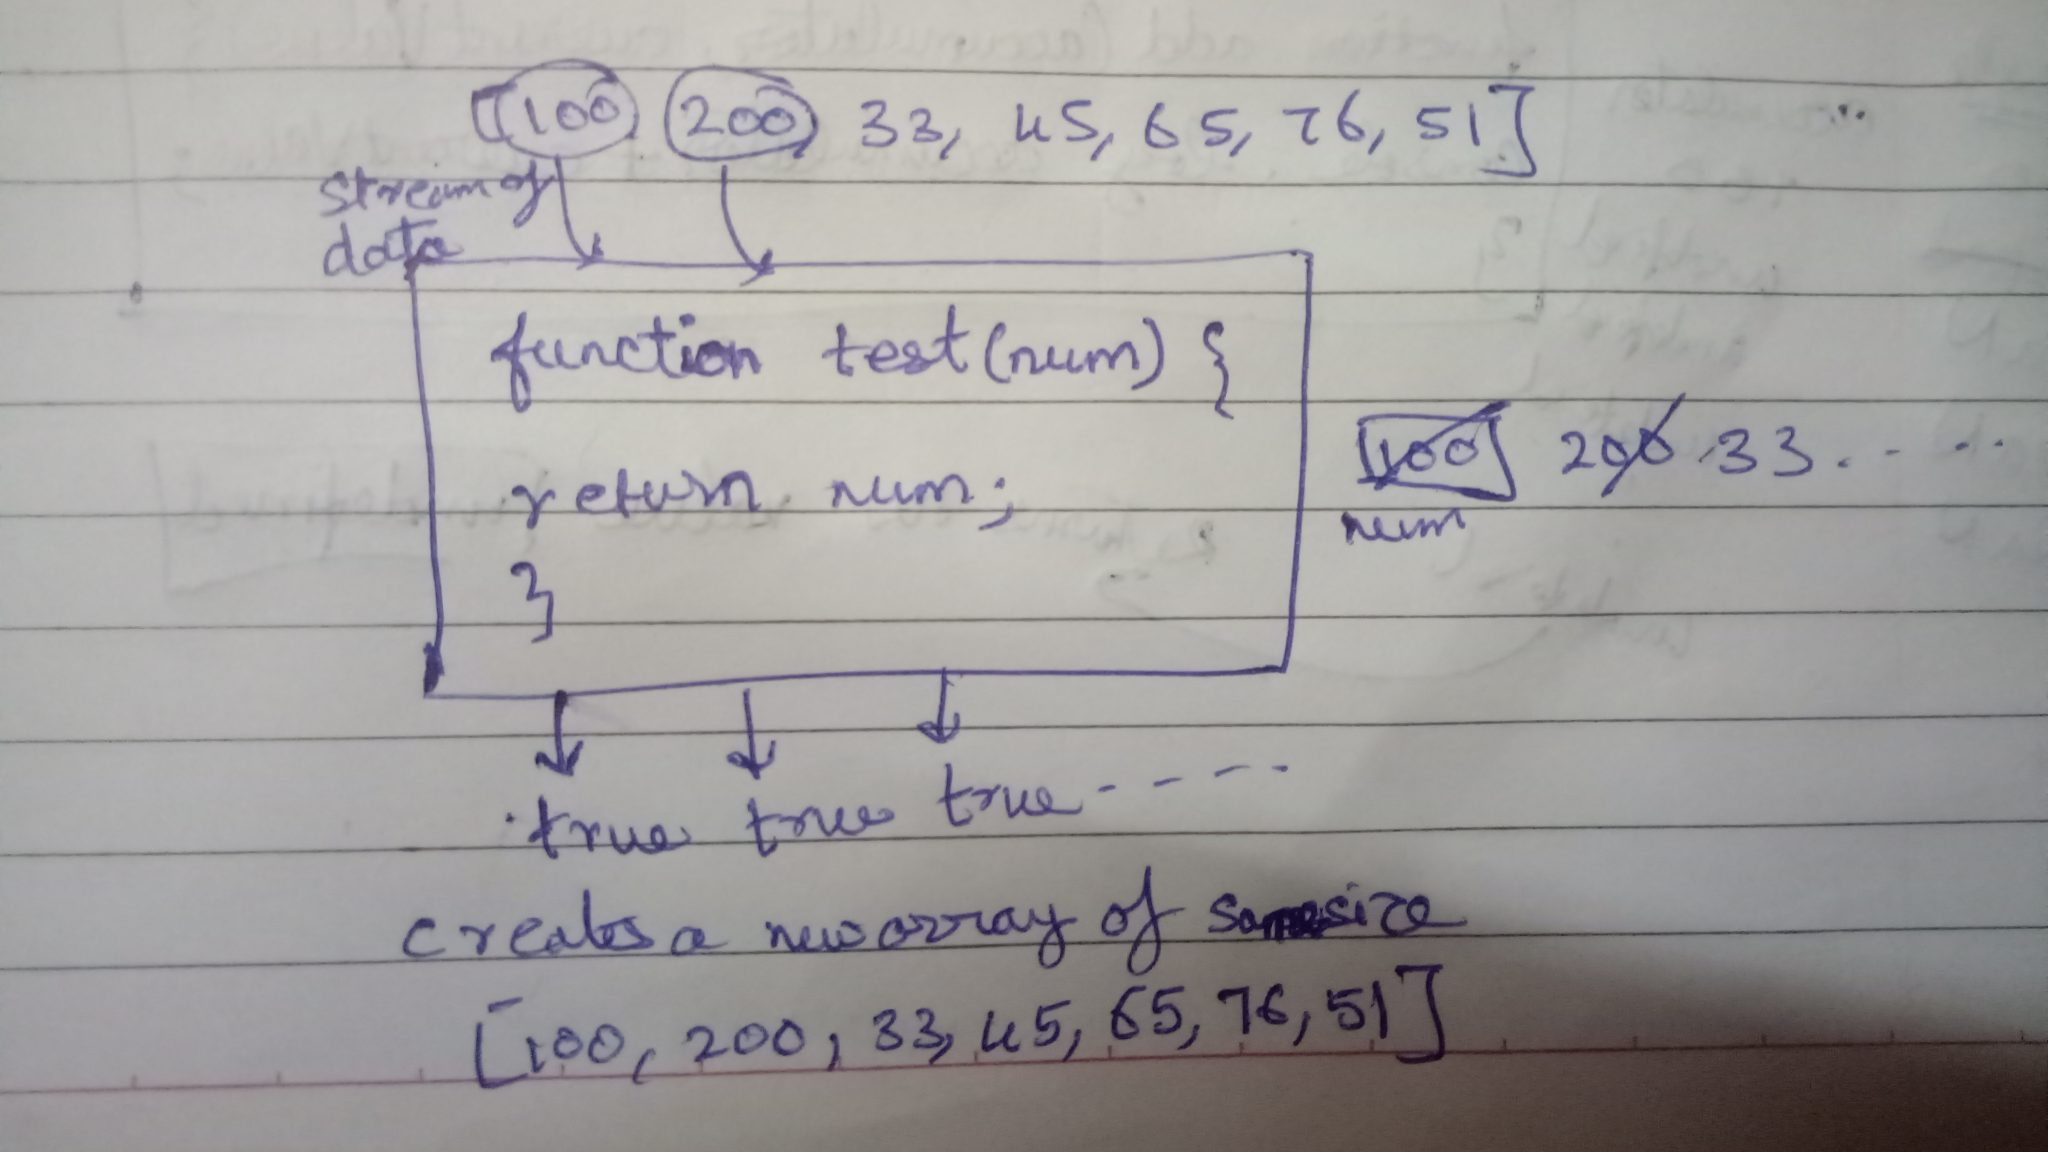 [100, 200, 33, 45, 65, 76, 51]
stream of
data
function test(num) {
return num;
}
100 200 33. - - - -
num
true true true - - - -
creates a new array of same size
[100, 200, 33, 45, 65, 76, 51]